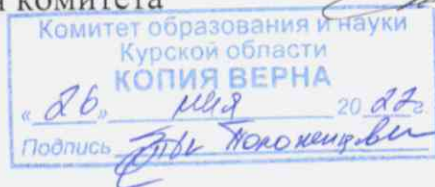 комитета
Комитет образования и науки
Курской области
КОПИЯ ВЕРНА
« 26 » мая 20 22 г.
Подпись